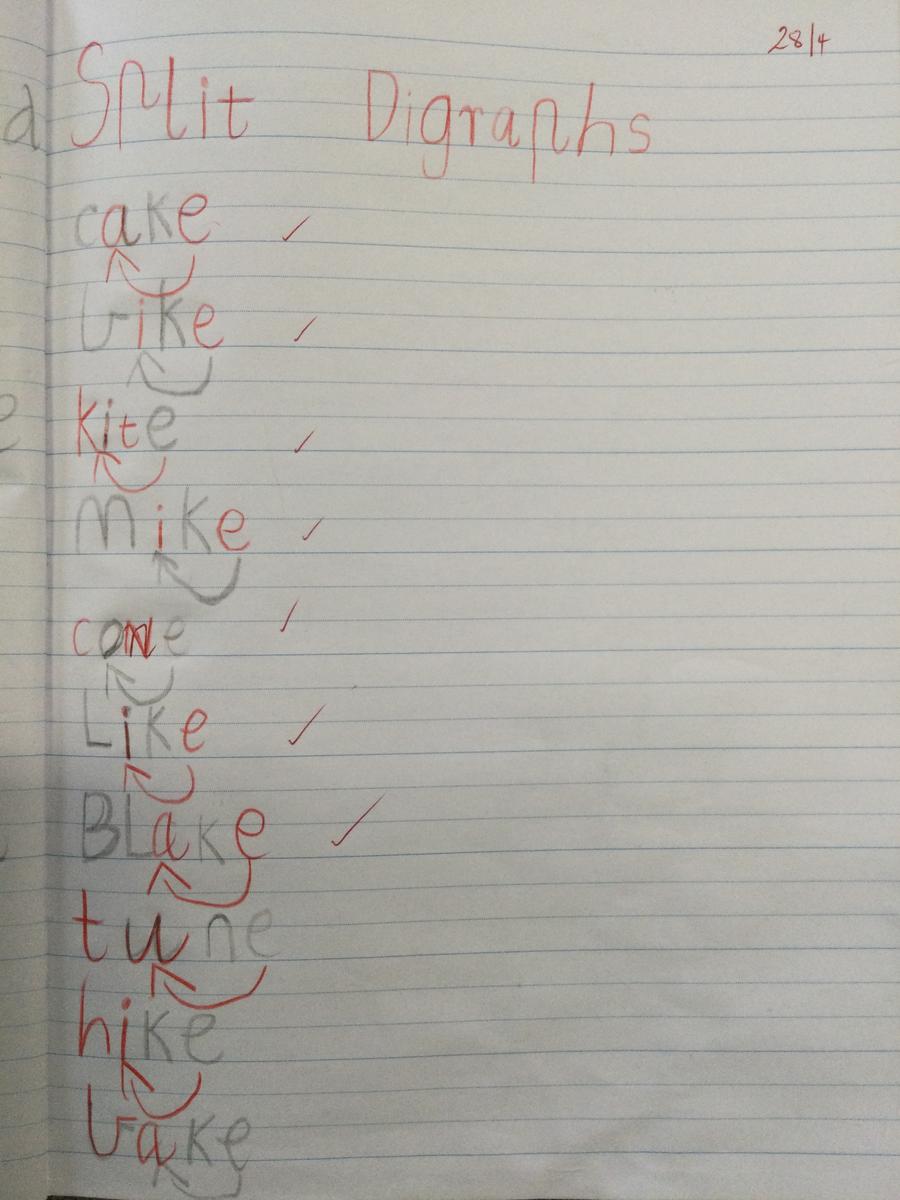 28/4
Split Digraphs
cake
bike
kite
Mike
cone
Like
BLake
tune
hike
bake